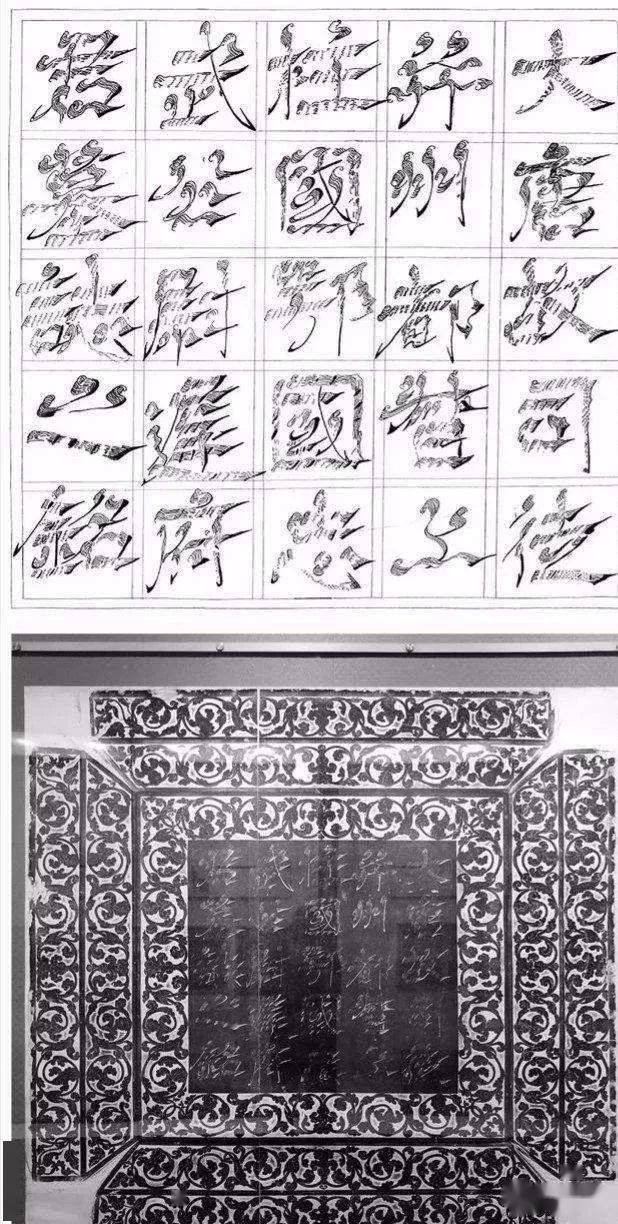 大唐故司徒
并州都督上
柱國鄂國忠
武公尉遲府
君墓誌之銘
大唐故司徒
并州都督上
柱國鄂國忠
武公尉遲府
君墓誌之銘